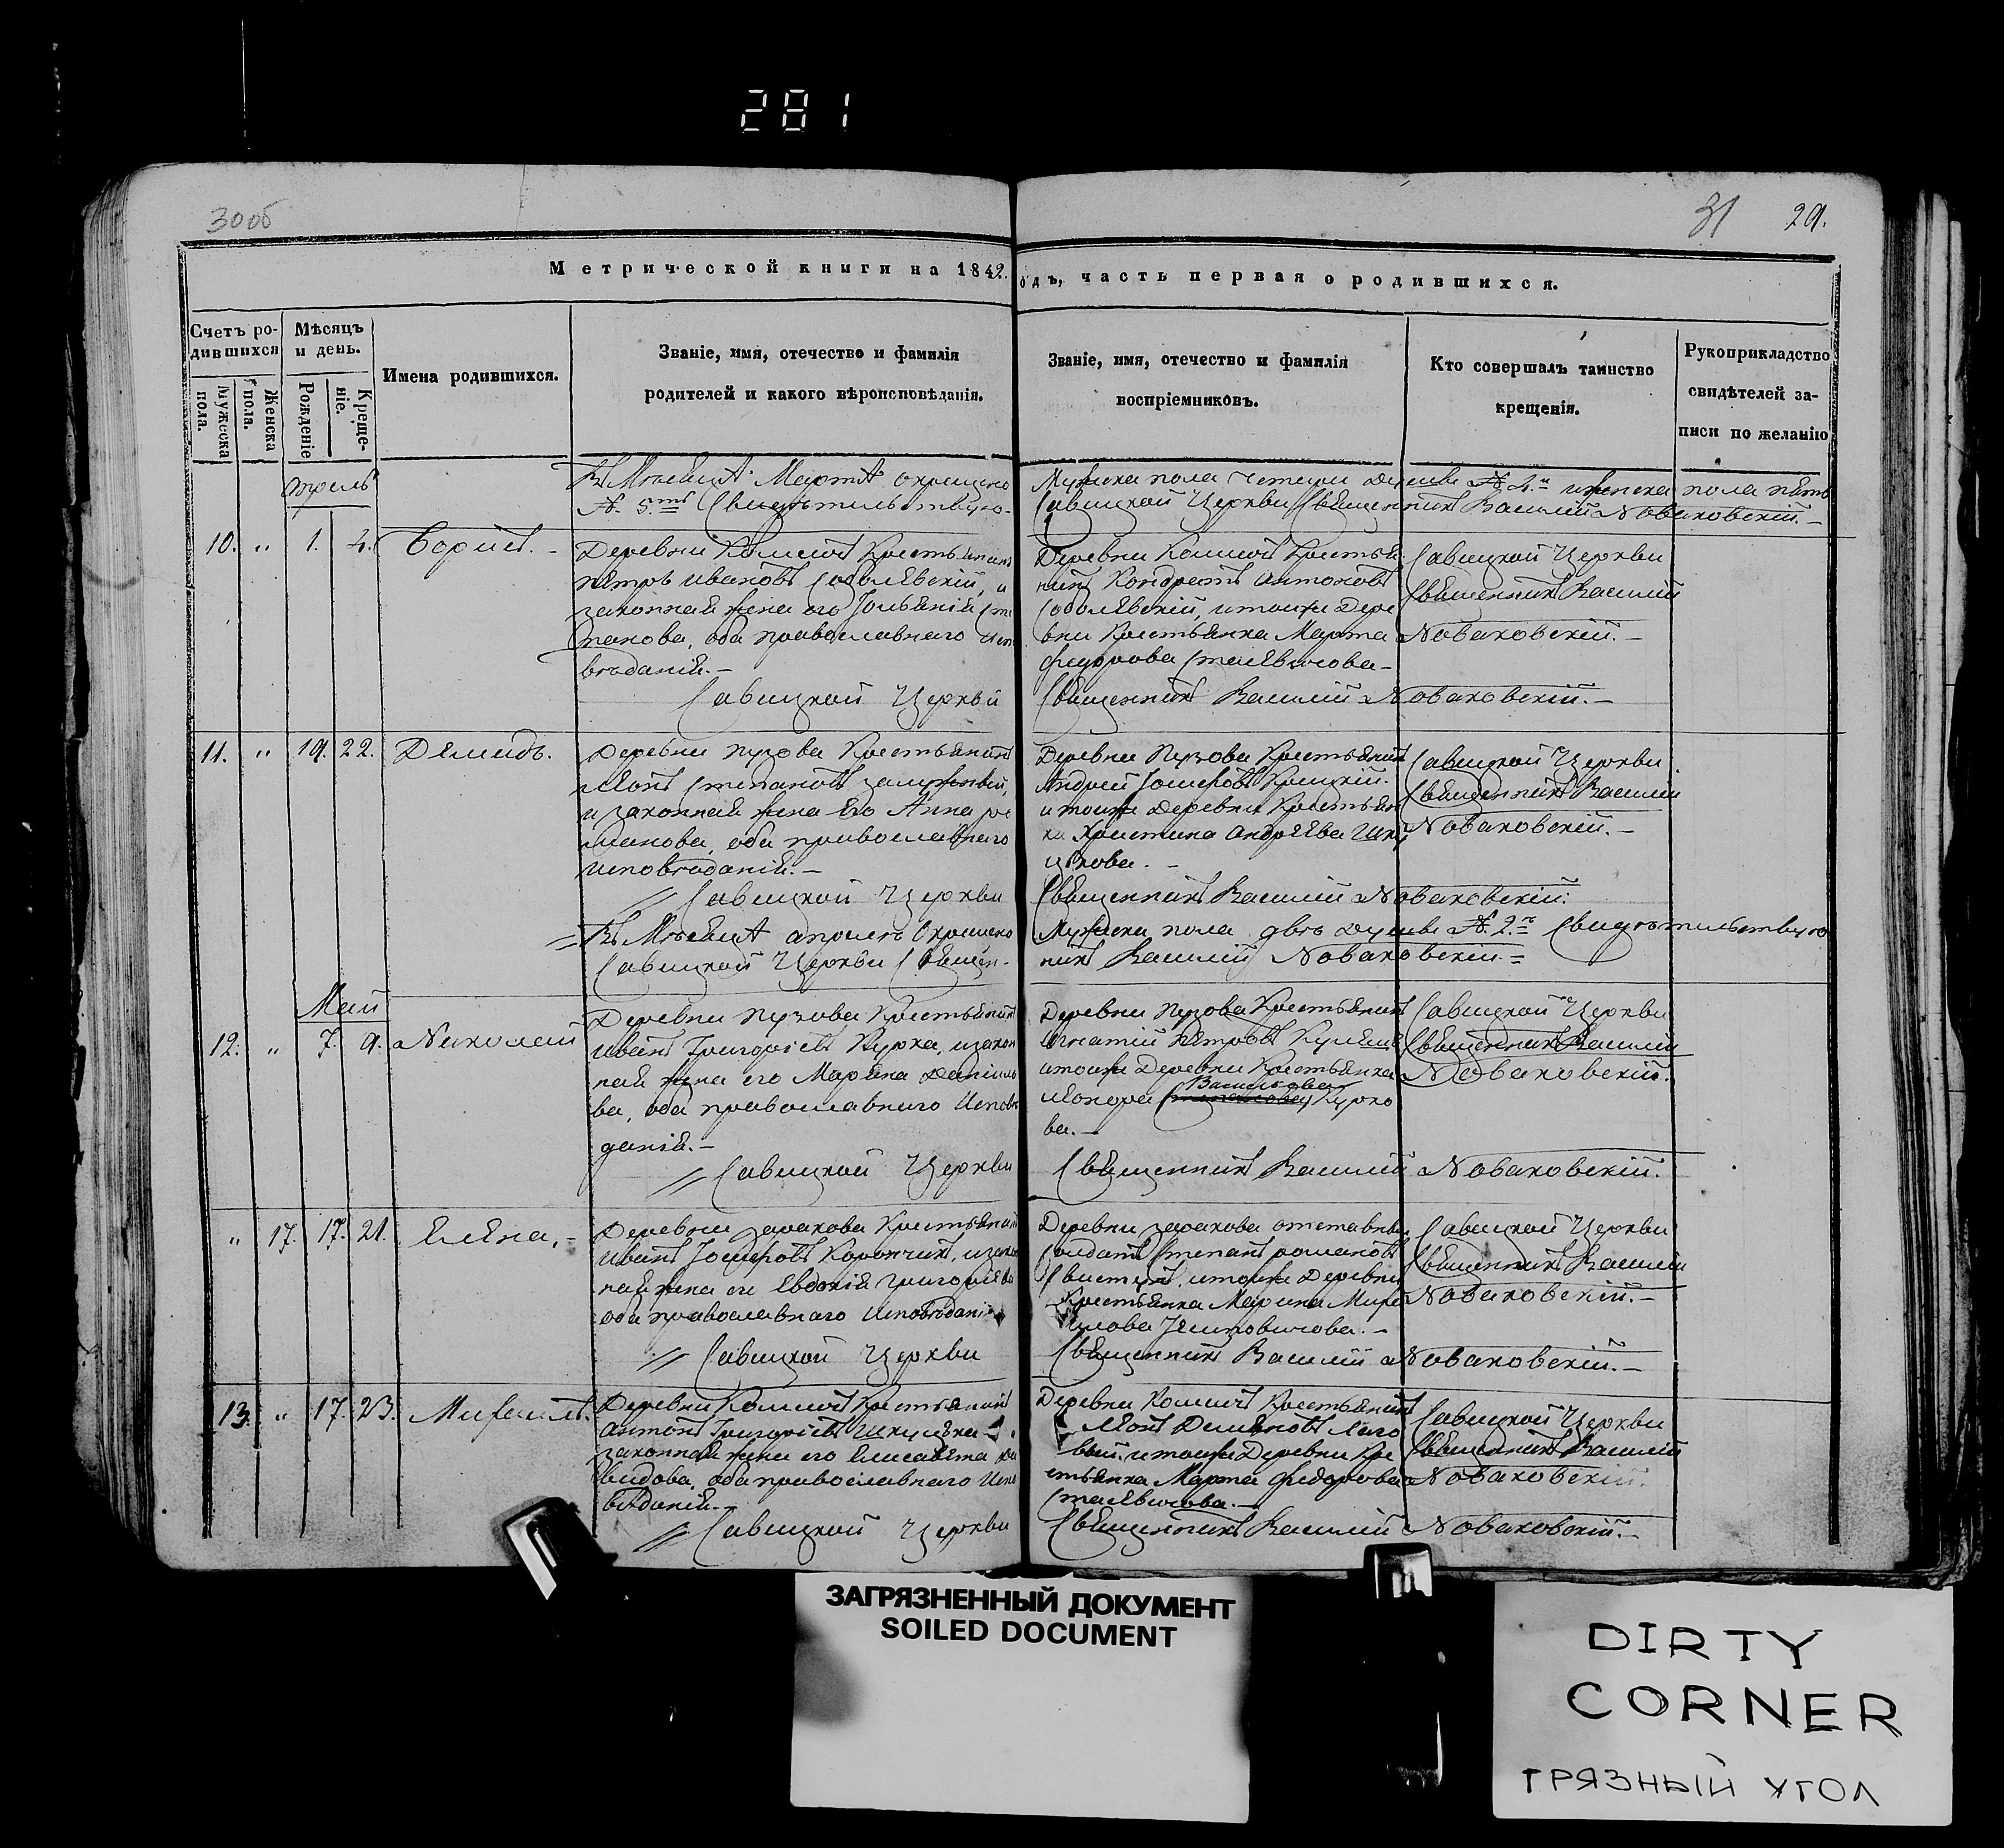 281
30об
31 29.
Метрической книги на 1842. одъ, часть первая о родившихся.
Счетъ ро-
дившихся
Мѣсяцъ
и день.
Мужеска
пола.
Женска
пола.
Рожденіе
Креще-
ніе.
Имена родившихся.
Званіе, имя, отечество и фамилія
родителей и какого вѣроисповѣданія.
Званіе, имя, отечество и фамилія
воспріемниковъ.
Кто совершалъ таинство
крещенія.
Рукоприкладство
свидѣтелей за-
писи по желанію
Въ Мѣсяцѣ Мартѣ окрещено Мужеска пола четыри душы №. 4. и женска пола пять
№. 5. Свидѣтельствую Савицкой Церкви Священникъ Василий Новаковскій.-
10. " 1. 4. Борисъ.-
Деревни Крестьянинъ
Петръ Ивановъ Соболевскій, и
законная жена его Юльянія Сте
панова, оба православнаго испо
вѣданія.-
Савицкой Церкви
Деревни Крестья
нинъ Кондратъ Антоновъ
Соболевскій, и тоиже Дере
вни Крестьянка Марта
Федорова
Священникъ Василий Новаковскій.-
Савицкой Церкви
Священникъ Василий
Новаковскій.-
11. " 19. 22. Демидъ.
Деревни Пузова Крестьянинъ
Степановъ
и законная жена Его Анна Ро
манова, оба православнаго
исповѣданія.-
Савицкой Церкви
Деревни Пузова Крестьянинъ
Андрей Іосифовъ
и тоиже Деревни Крестьян
ка Христина Андреева
Священникъ Василий Новаковскій.
Савицкой Церкви
Священникъ Василий
Новаковскій.-
Въ Мѣсяцѣ апрелѣ Окрещено Мужеска пола двѣ душы №. 2. Свидѣтельствую
Савицкой Церкви Священ- никъ Василий Новаковскій.
Май
12. " 7. 9. Николай
Деревни Пузова Крестьянинъ
Иванъ Григоріевъ Курка, и закон
ная жена его Марьяна Даніило
ва, оба православнаго Исповѣ
данія.-
Савицкой Церкви
Деревни Пузова Крестьянинъ
Игнатій Петровъ
и тоиже Деревни Крестьянка
Васильева
Курко
ва.-
Священникъ Василий Новаковскій.
Савицкой Церкви
Священникъ Василий
Новаковскій.
" 17. 17. 21. Елена,-
Деревни Крестьянинъ
Иванъ Іосифовъ и закон
ная жена его Евдокія Григоріева
оба православнаго Исповѣданія
Савицкой Церкви
Деревни отставный
Солдатъ Степанъ Романовъ
и тоиже Деревни
Крестьянка Марина
Священникъ Василий Новаковскій.-
Савицкой Церкви
Священникъ Василий
Новаковскій.-
13. " 17. 23. Михаилъ.
Деревни Крестьянинъ
Антонъ Григоріевъ
законная жена его Елисавета Да
видова, оба православнаго Испо
вѣданія.-
Савицкой Церкви
Деревни Крестьянинъ
и тоиже Деревни Кре
стьянка Марта Федорова
Священникъ Василий Новаковскій.-
Савицкой Церкви
Священникъ Василий
Новаковскій.
ЗАГРЯЗНЕННЫЙ ДОКУМЕНТ
SOILED DOCUMENT
DIRTY
CORNER
ГРЯЗНЫЙ УГОЛ